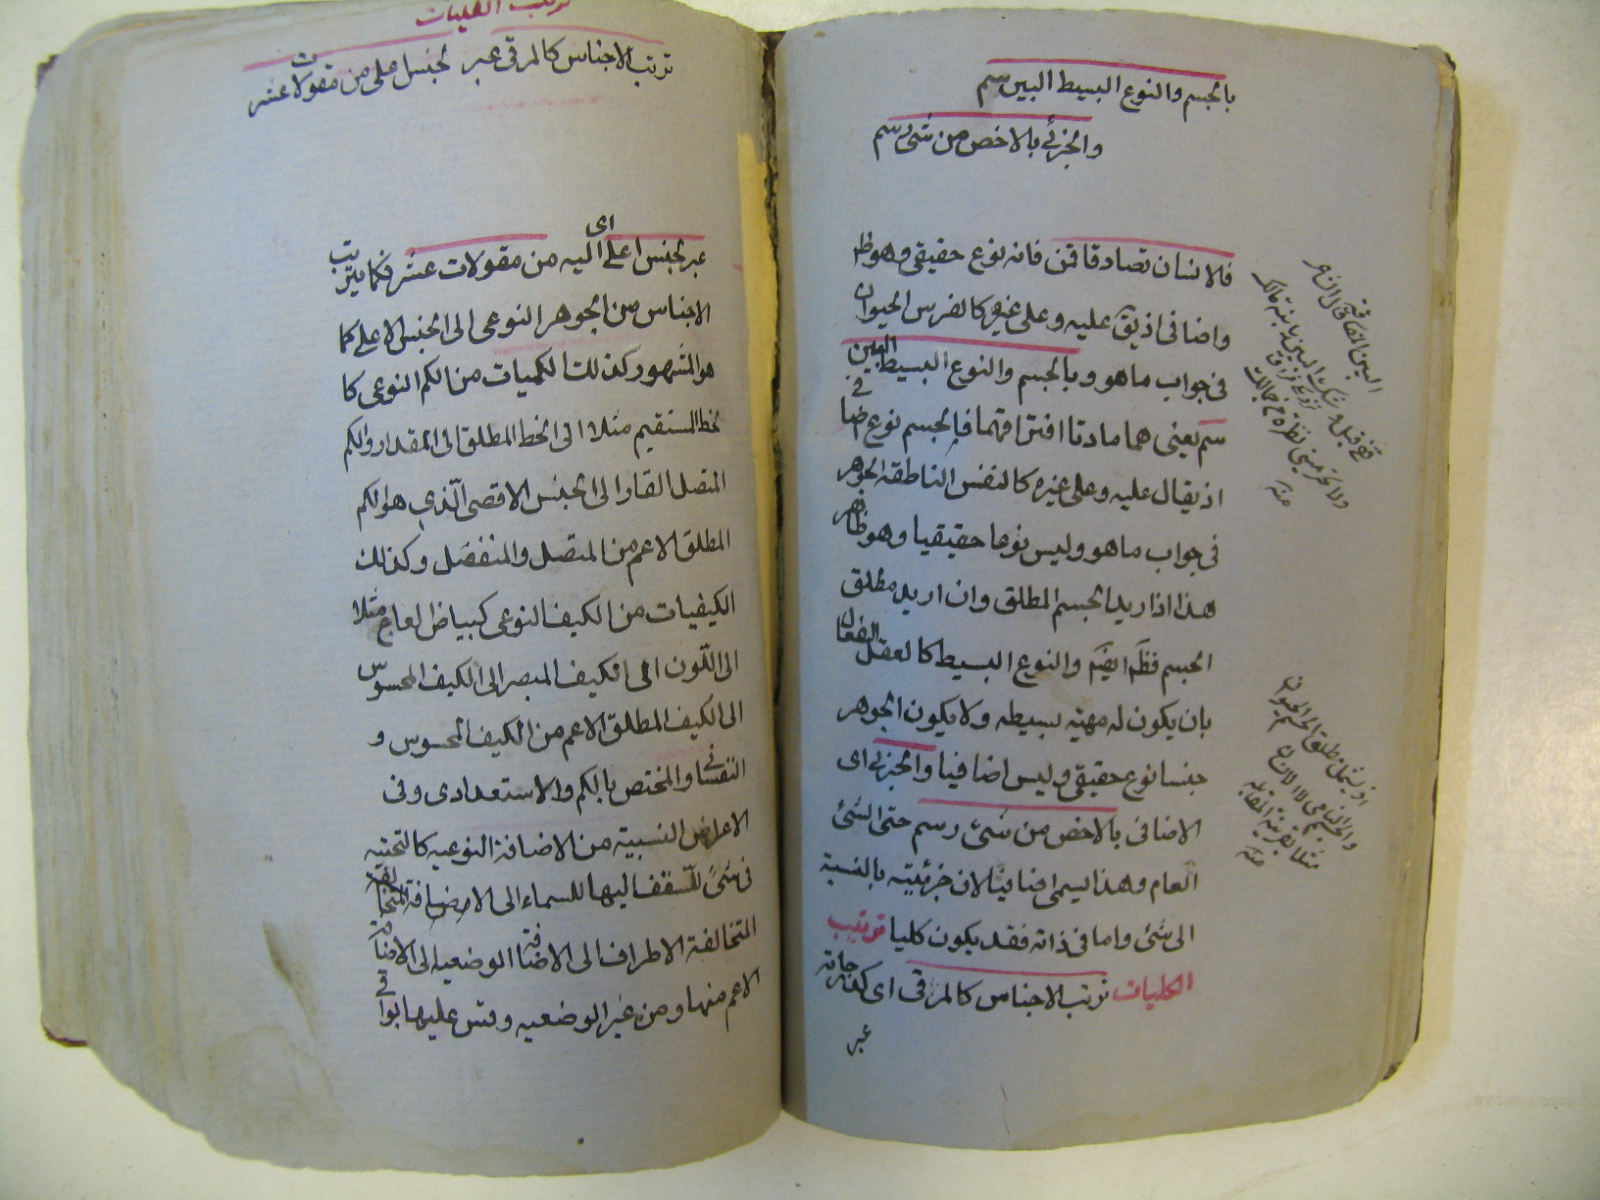 بالجسم والنوع البسيط البين سم
والجزئي بالاخص من شئ رسم
فالانسان تصادقا قمن فانه نوع حقيقي وهو ظ
واضافي اذ يق عليه وعلى غيره كالفرس الحيوان
في جواب ما هو وبالجسم والنوع البسيط البين
سم يعني هما مادتا افتراقهما فالجسم نوع اضافي
اذ يقال عليه وعلى غيره كالنفس الناطقة الجوهر
في جواب ما هو وليس نوعا حقيقيا وهو ظاهر
هذا اذا اريد الجسم المطلق وان اريد مطلق
الجسم فظ ايضم والنوع البسيط كالعقل الفعال
بان يكون له مهية بسيطه ولا يكون الجوهر
جنسا نوع حقيقي وليس اضافيا والجزئي اى
الاضافي بالاخص من شئ رسم حتى الشئ
العام وهذا يسمى اضافيا لان جزئيته بالنسبة
الى شئ واما في ذاته فقد يكون كليا ترتيب
الكليات ترتب الاجناس كالمرقى اى كدرجاته
عبر
ترتيب الكليات
ترتب الاجناس كالمرقى عبر لجنس على من مقولات عشر
عبر لجنس اعلى اى اليه من مقولات عشر فكما يترتب
الاجناس من الجوهر النوعى الى الجنس الاعلى كما
هو المشهور كذلك الكميات من الكم النوعى كا
لخط المستقيم مثلا الى الخط المطلق الى المقدار والكم
المتصل القار الى الجنس الاقصى الذي هو الكم
المطلق الاعم من المتصل والمنفصل وكذلك
الكيفيات من الكيف النوعى كبياض العاج مثلا
الى اللون الى الكيف المبصر الى الكيف المحسوس
الى الكيف المطلق الاعم من الكيف المحسوس و
النفسانى والمختص بالكم والاستعدادى وفى
الاعراض النسبية من الاضافة النوعيه كالتحتيه
فى شئ للسقف اليها للسماء الى الاضافة المتخالفة
المتخالفة الاطراف الى الاضافة الوضعيه الى الاضافة
الاعم منها ومن غير الوضعيه وقس عليها البواقى